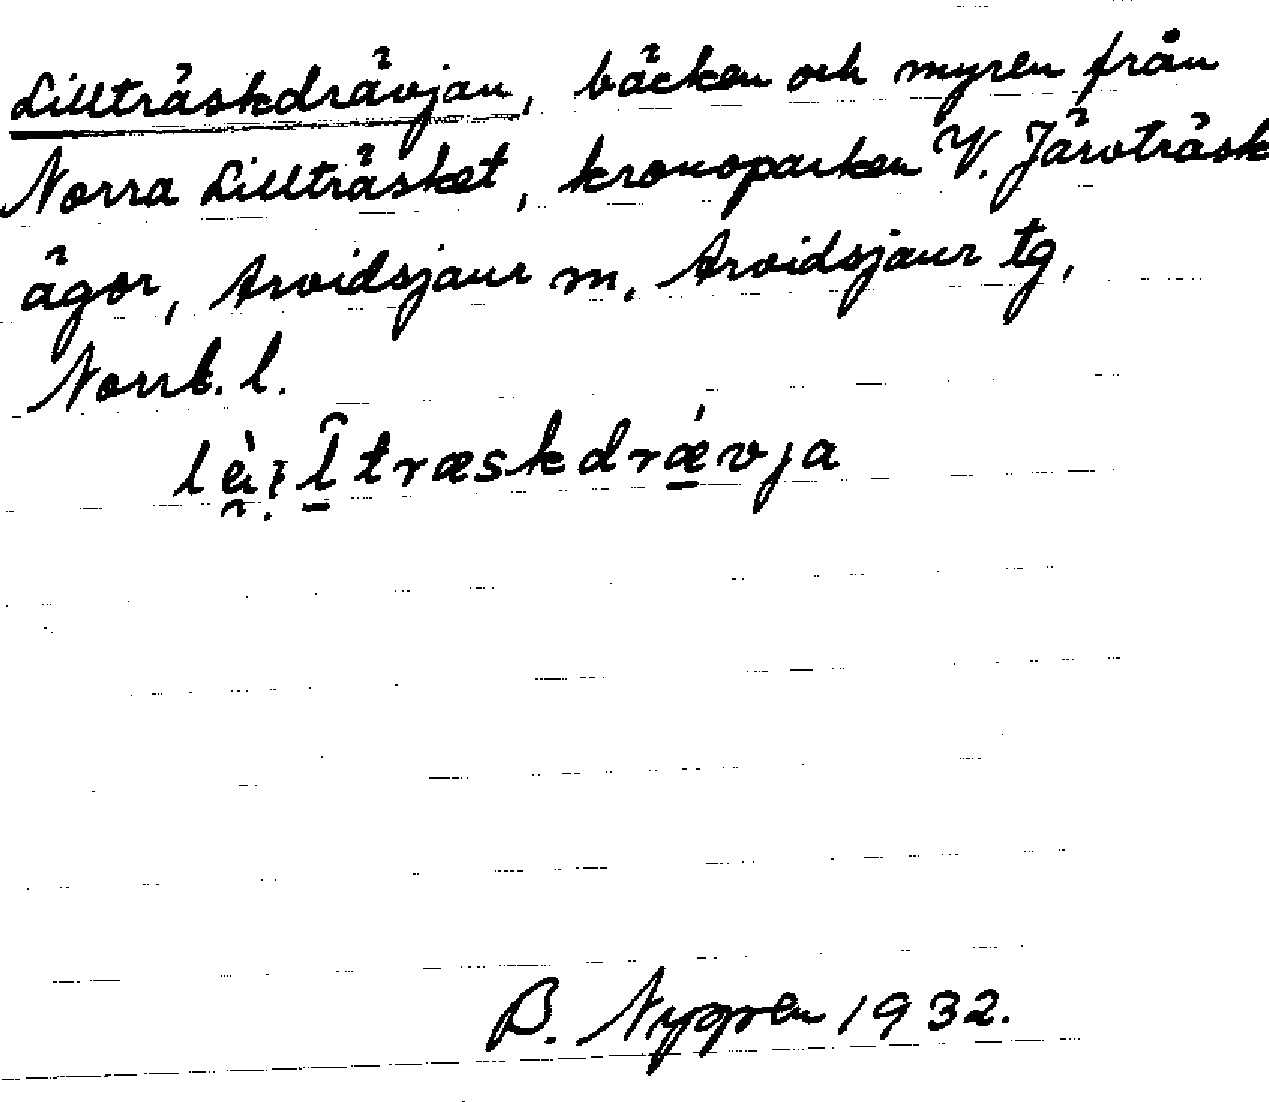 Lillträskdrävjan, bäcken och myren från
Norra Lillträsket, kronoparken V. Järvträsk
ägor, Arvidsjaur m. Arvidsjaur tg,
Norrb. l.
träskdrǽvja
B. Nygren 1932.